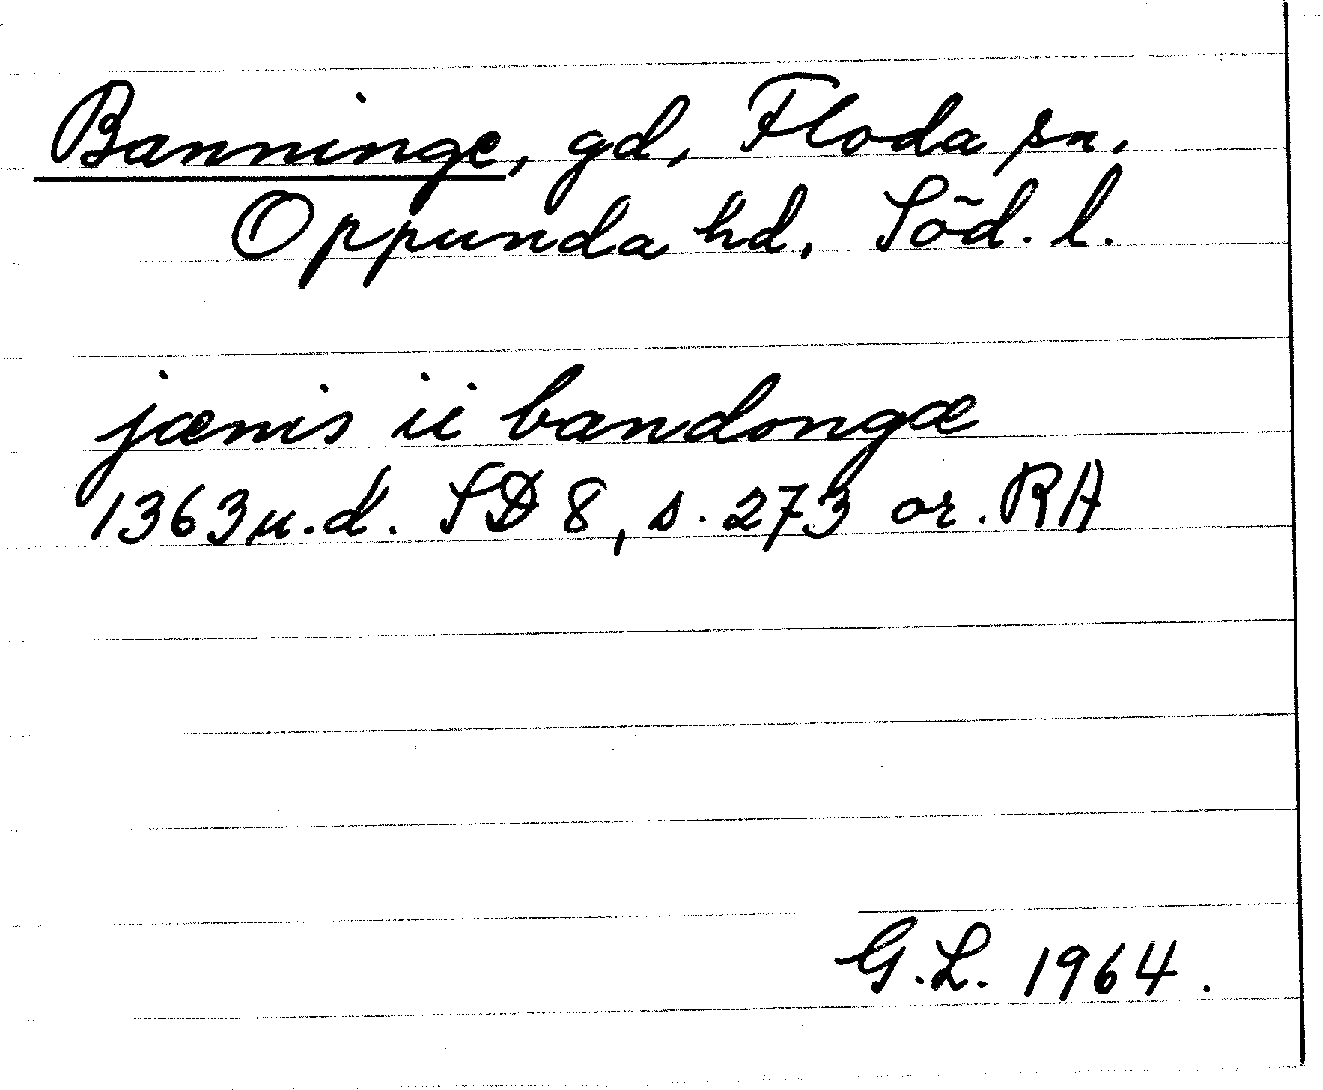 Banninge, gd, Floda sn,
Oppunda hd, Söd. l.
jænis ii bandongæ
1363 u.d. SD 8, s. 273 or. RA
G.L. 1964.